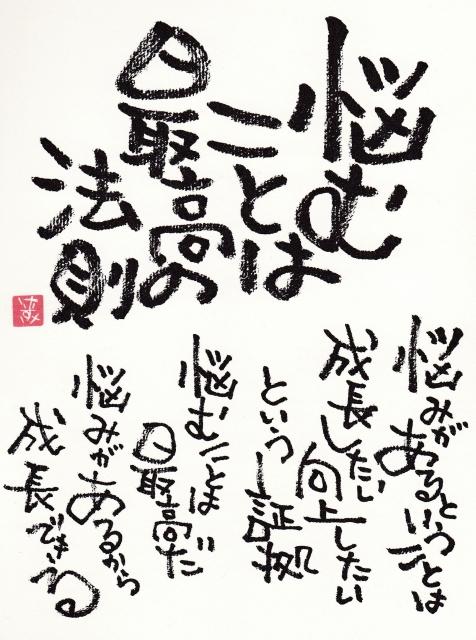 悩む
ことは
最高の
法則
悩みが
あるということは
成長したい
向上したい
という証拠
悩むことは
最高だ
悩みが
あるから
成長できる